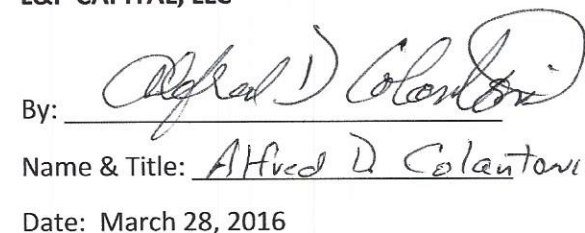 CAPITAL, LLC
By: Alfred D Colantoni
Name & Title: Alfred D. Colantoni
Date: March 28, 2016